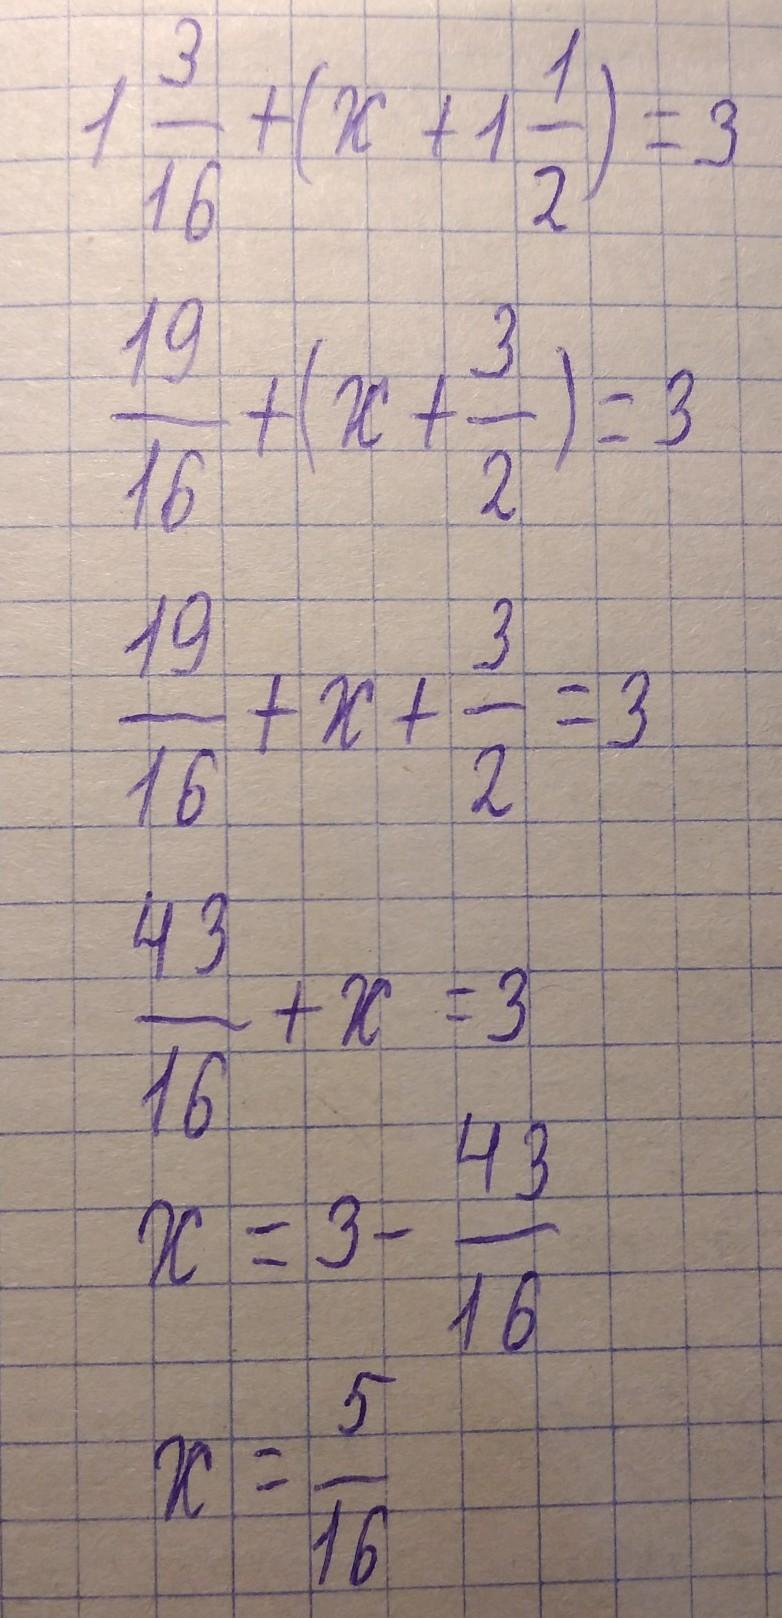 1 3/16 + (x + 1 1/2) = 3
19/16 + (x + 3/2) = 3
19/16 + x + 3/2 = 3
43/16 + x = 3
x = 3 - 43/16
x = 5/16